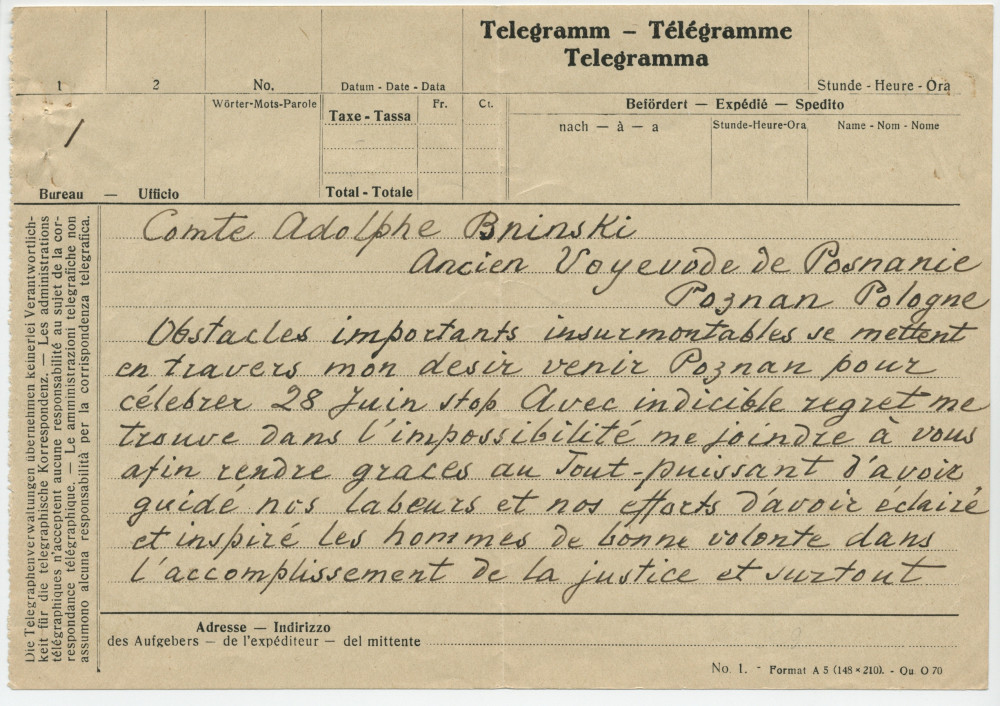 Telegramm – Télégramme
Telegramma
1 2 No. Datum - Date - Data Stunde - Heure - Ora
Wörter-Mots-Parole Taxe - Tassa Fr. Ct. Befördert — Expédié — Spedito
nach — à — a Stunde-Heure-Ora Name - Nom - Nome
1
Bureau — Ufficio Total - Totale
Die Telegraphenverwaltungen übernehmen keinerlei Verantwortlich-
keit für die telegraphische Korrespondenz. — Les administrations
télégraphiques n'acceptent aucune responsabilité au sujet de la cor-
respondance télégraphique. — Le amministrazioni telegrafiche non
assumono alcuna responsabilità per la corrispondenza telegrafica.
Comte Adolphe Bninski
Ancien Voyevode de Posnanie
Poznan Pologne
Obstacles importants insurmontables se mettent
en travers mon desir venir Poznan pour
célebrer 28 Juin stop Avec indicible regret me
trouve dans l'impossibilité me joindre à vous
afin rendre graces au Tout-puissant d'avoir
guidé nos labeurs et nos efforts d'avoir éclairé
et inspiré les hommes de bonne volonte dans
l'accomplissement de la justice et surtout
Adresse — Indirizzo
des Aufgebers — de l'expéditeur — del mittente
No. 1. - Format A 5 (148 × 210). - Qu. O 70